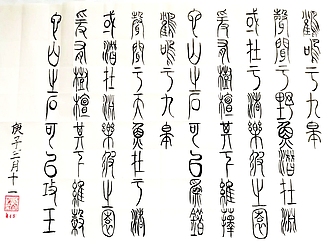 鶴鳴于九皋
聲聞于野魚潛在淵
或在于渚樂彼之園
爰有樹檀其下維蘀
它山之石可以為錯
鶴鳴于九皋
聲聞于天魚在于渚
或潛在淵樂彼之園
爰有樹檀其下維榖
它山之石可以攻玉
庚子三月十一